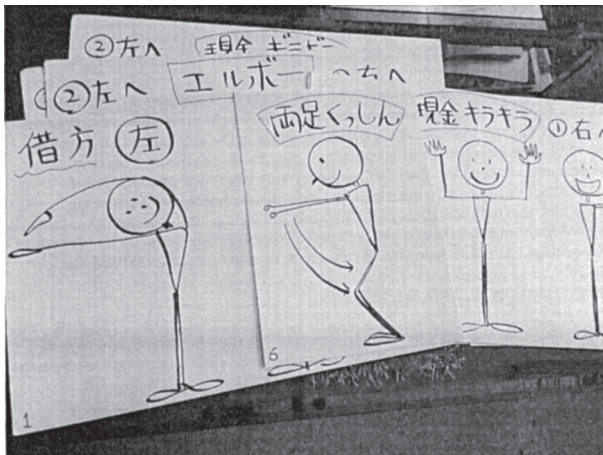 ②左へ 現金
②左へ エルボー 右へ
借方 左
両足くっしん
現金キラキラ
①右へ
1
6